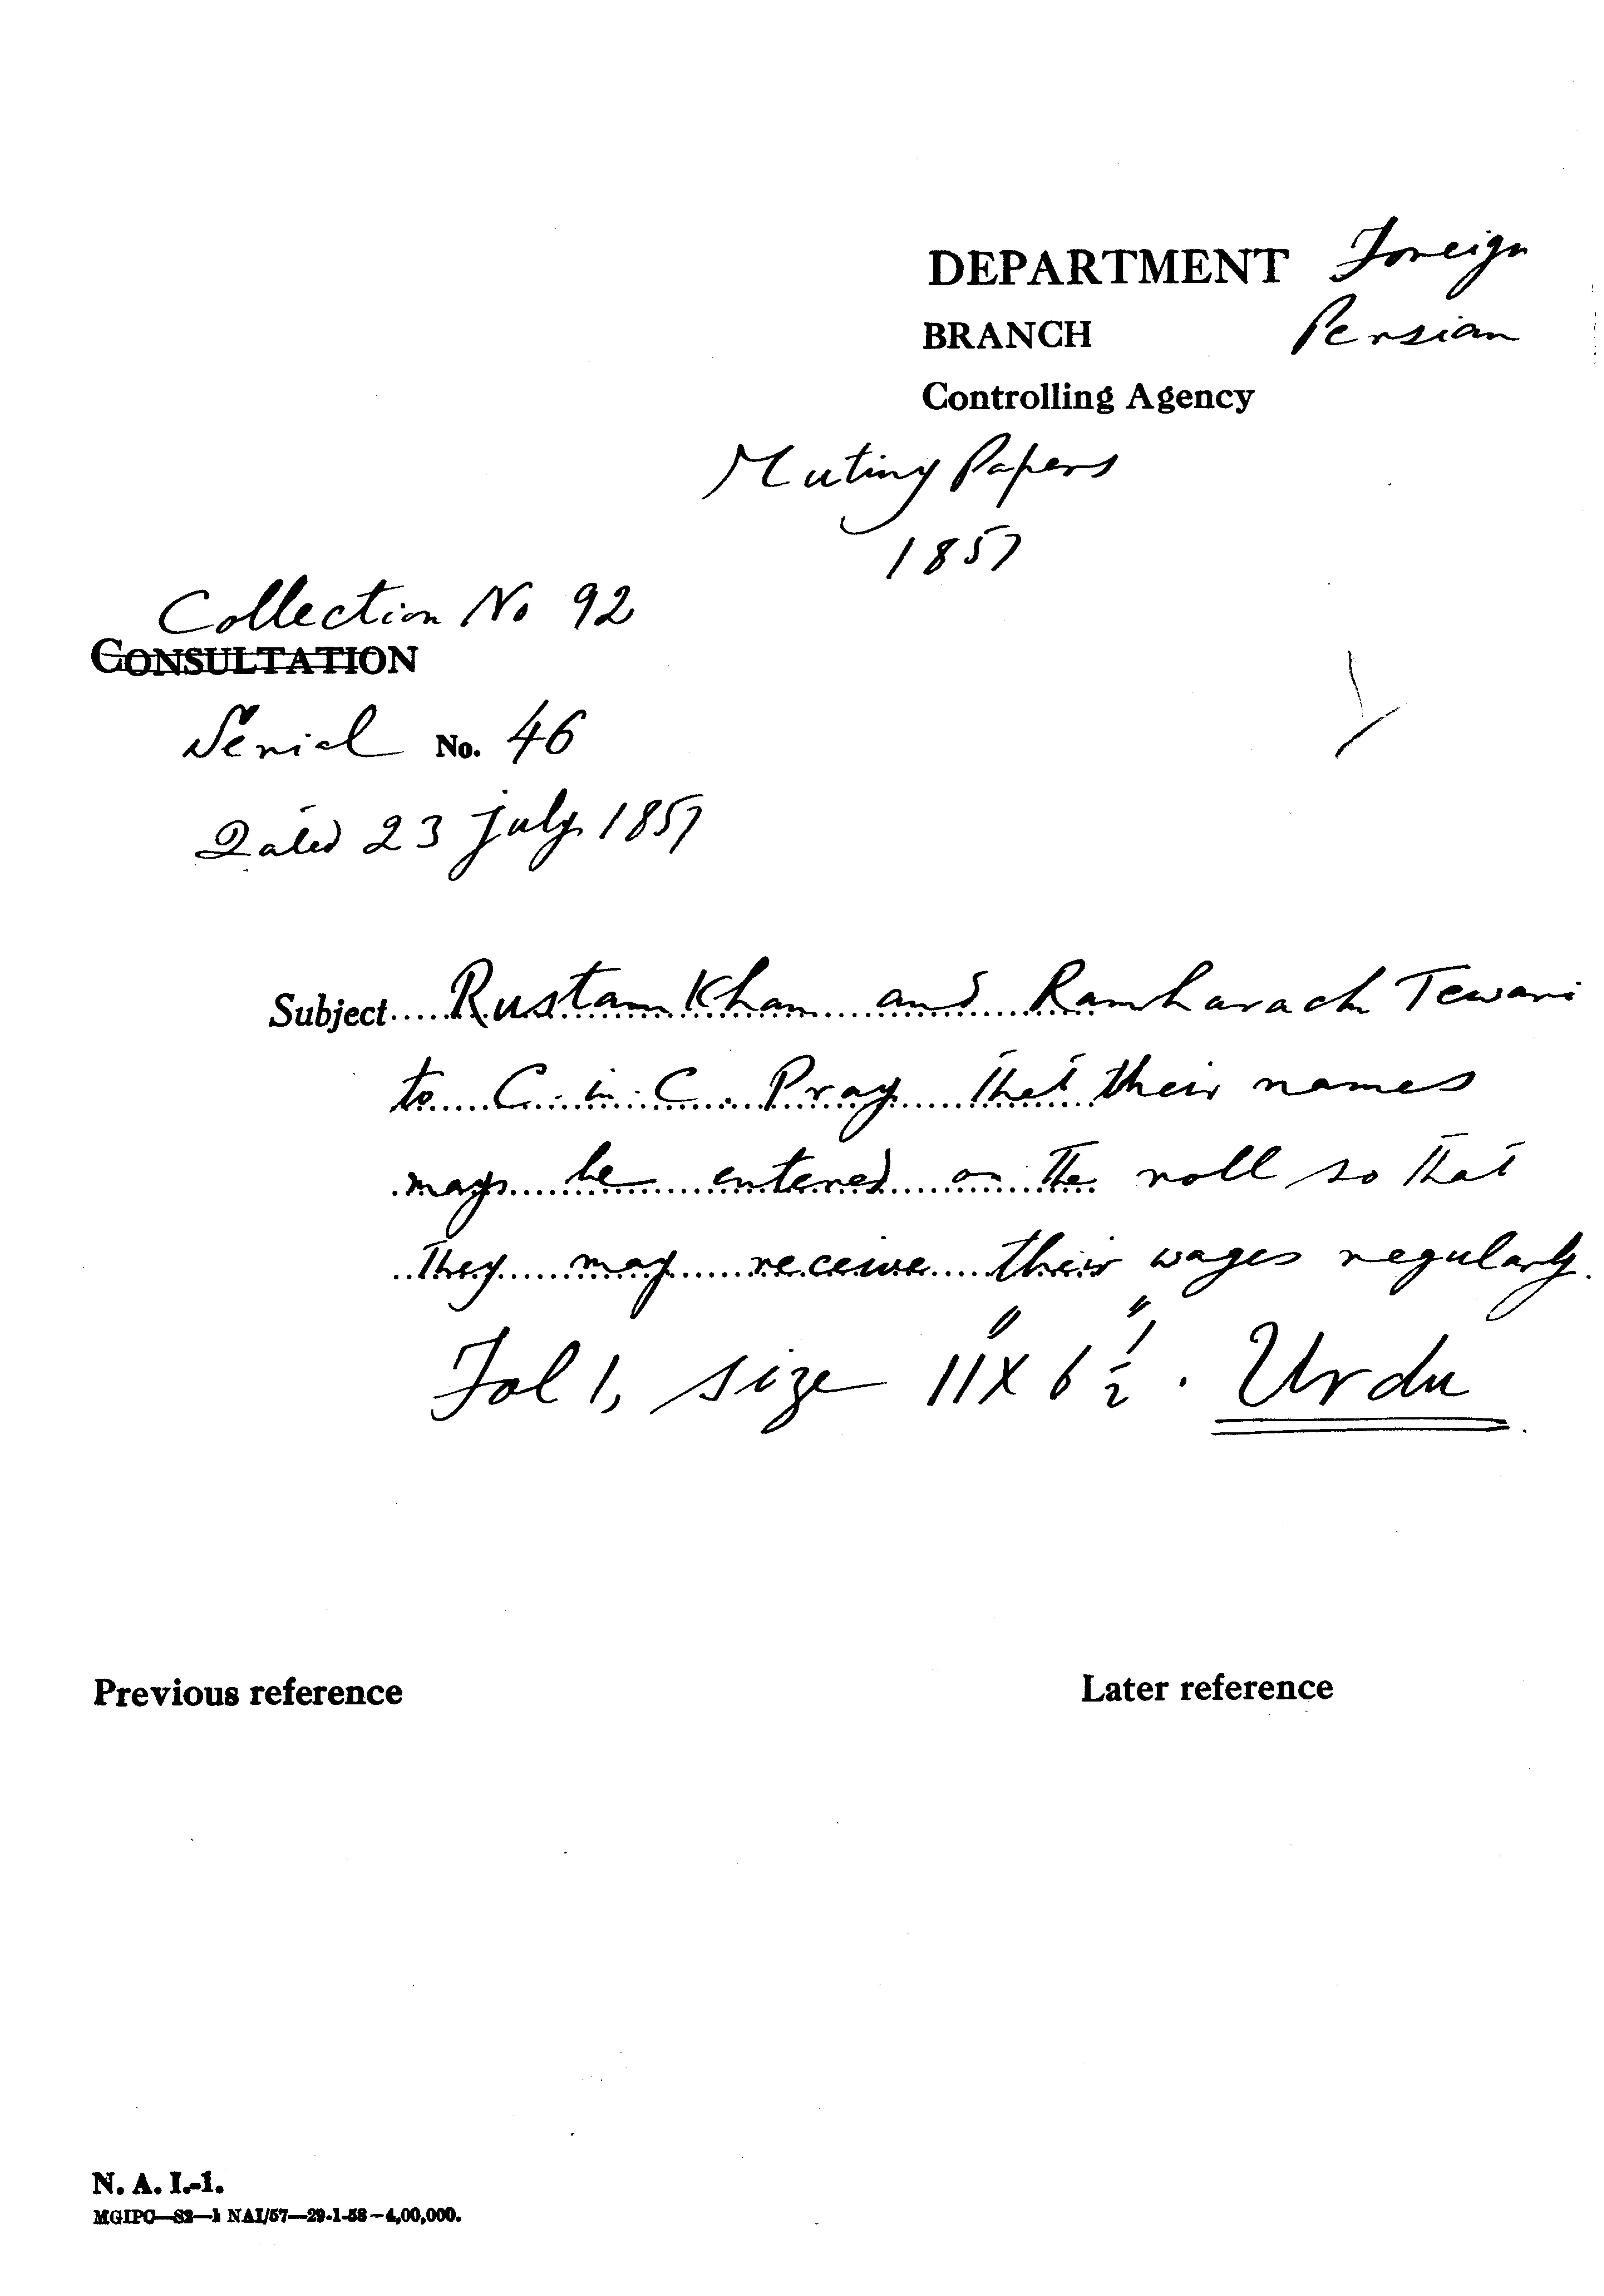 DEPARTMENT Foreign
BRANCH Persian
Controlling Agency
Mutiny Papers
1857
Collection No 92
CONSULTATION
Serial No. 46
Dated 23 July 1857
Subject Rustam Khan and Ramharach Tewari
to C. in. C. Pray that their names
may be entered on the roll so that
they may receive their wages regularly.
Fol 1, size 11" X 6 1/2" . Urdu
Previous reference Later reference
N. A. I.-1.
MGIPC—S2—1 NAI/57—29-1-58—4,00,000.